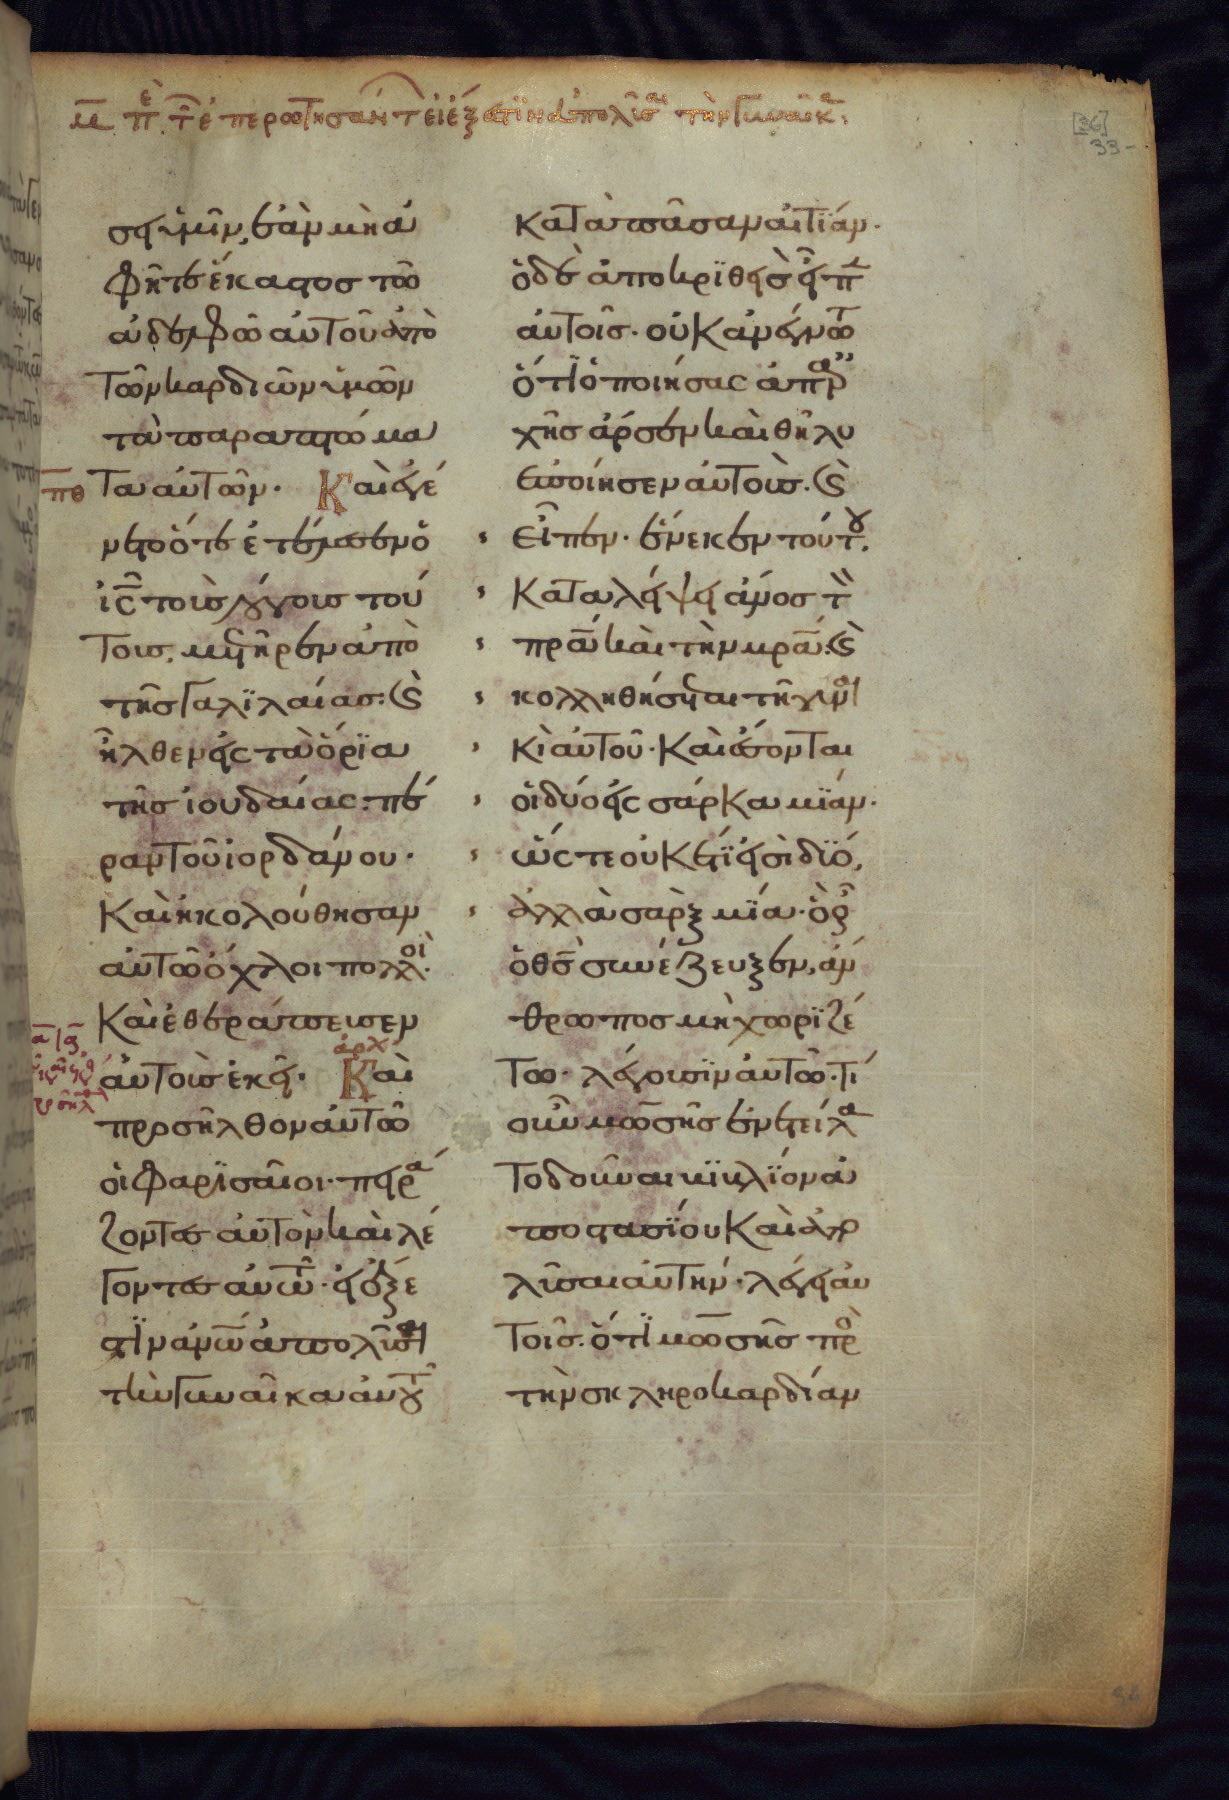 μ̅ πὲ τ̑ ἐπερωτησάντ εἰ ἔξεστϊν ἀπολῦσαι τὴν γυναῖκα·
[36]
33-
σει ὑμῖν, ἐὰν μὴ ἀ
φῆτε ἕκαστος τῶ
ἀδελφῶ αὐτοῦ ἀπὸ
τῶν καρδιῶν ὑμῶν
τὰ παραπτώμα
πθ
τα αὐτῶν· Καὶ ἐγέ
νετο ὅτε ἐτέλεσεν ὁ
ι̅ς̅ τοὺς λόγους τού
τους, μετῆρεν ἀπὸ
τῆς Γαλϊλαίας· (καὶ)
ἦλθεν εἰς τὰ ὅρϊα
τῆς ἰουδαίας πέ
ραν τοῦ ἰορδάνου·
Καὶ ἠκολούθησαν
αὐτῶ ὄχλοι πολλοὶ·
Καὶ ἐθεράπευσεν
ἀρχ
αὐτοὺς ἐκεῖ· Καὶ
προσῆλθον αὐτῶ
οἱ Φαρϊσαῖοι· πειρά
ζοντες αὐτὸν καὶ λέ
γοντες αὐτῶ· εἰ ἔξε
στϊν ἀν̅ω̅ ἀπολῦσαι
τὴν γυναῖκα αὐτοῦ
κατὰ πᾶσαν αἰτϊάν·
ὁ δὲ ἀποκρϊθεὶς εἶπ
αὐτοῖς· οὐκ ἀνέγνωτ
ὅτϊ ὁ ποιήσας ἀπαρ
χῆς ἄρσεν καὶ θῆλυ
ἐποίησεν αὐτοὺς· (καὶ)
εἶπεν· ἕνεκεν τούτου,
καταλείψει ἄνος τὸν
πρ̅α̅ καὶ τὴν μρ̅α̅· (καὶ)
κολληθήσεται τῆ γυναι
κὶ αὐτοῦ· Καὶ ἔσονται
οἱ δύο εἰς σάρκα μϊάν·
ὥςτε οὐκέτϊ εἰσὶ δϊό,
ἀλλὰ σὰρξ μϊα· ὃ οὖν
ὁ θσ̅ συνέζευξεν, ἄν
θρωπος μὴ χωρϊζέ
τω· λέγουσϊν αὐτῶ· τί
οὖν μωσῆς ἐνετείλα
το δοῦναι βϊβλϊον ἀ
ποστασϊου καὶ ἀπο
λῦσαι αὐτήν· λέγει αυ
τοῖς· ὅτϊ μωσῆς πρὸ
τὴν σκληροκαρδίαν